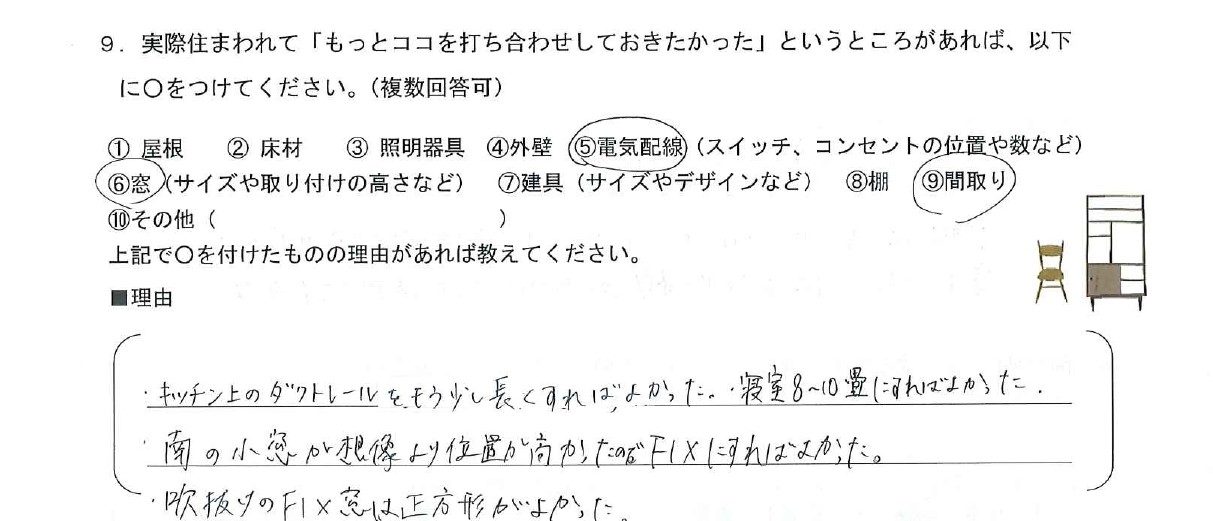 9．実際住まわれて「もっとココを打ち合わせしておきたかった」というところがあれば、以下
に〇をつけてください。（複数回答可）
① 屋根　② 床材　③ 照明器具　④外壁　⑤電気配線（スイッチ、コンセントの位置や数など）
⑥窓（サイズや取り付けの高さなど）　⑦建具（サイズやデザインなど）　⑧棚　⑨間取り
⑩その他（　　　　　　　　　　　　）
上記で〇を付けたものの理由があれば教えてください。
■理由
・キッチン上のダクトレールをもう少し長くすればよかった。・寝室8～10畳にすればよかった.
・南の小窓が想像より位置が高かったのでFIXにすればよかった。
・吹抜りのFIX窓は正方形がよかった。